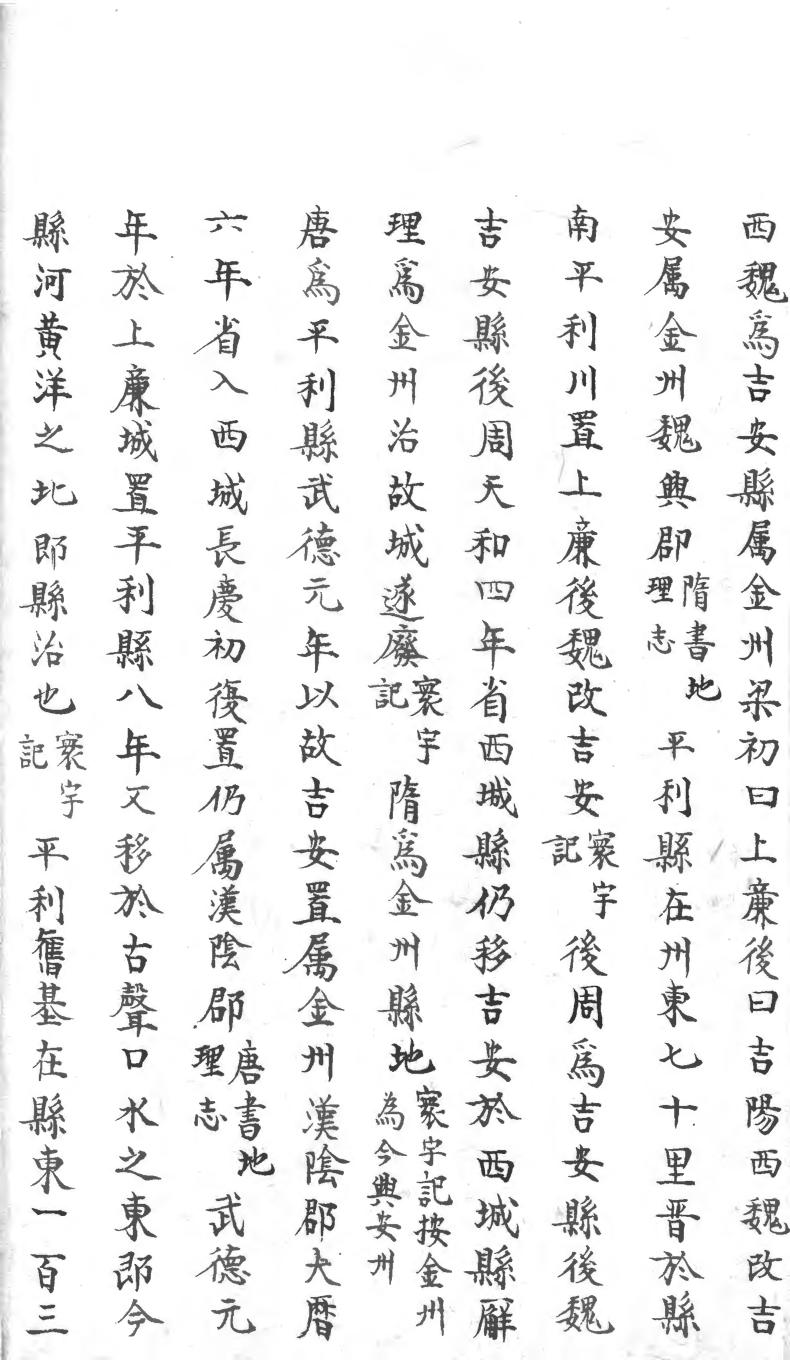 西魏爲吉安縣属金州梁初曰上亷後曰吉陽西魏改吉
安属金州魏興郡隋書地理志平利縣在州東七十里晋於縣
南平利川置上亷後魏改吉安寰宇記後周爲吉安縣後魏
吉安縣後周天和四年省西城縣仍移吉安於西城縣廨
理爲金州治故城遂廢寰宇記隋爲金州縣地寰宇記按金州為今興安州
唐爲平利縣武德元年以故吉安置属金州漢陰郡大暦
六年省入西城長慶初復置仍属漢陰郡唐書地理志武德元
年於上亷城置平利縣八年又移於古聲口水之東即今
縣河黄洋之北即縣治也寰宇記平利舊基在縣東一百三